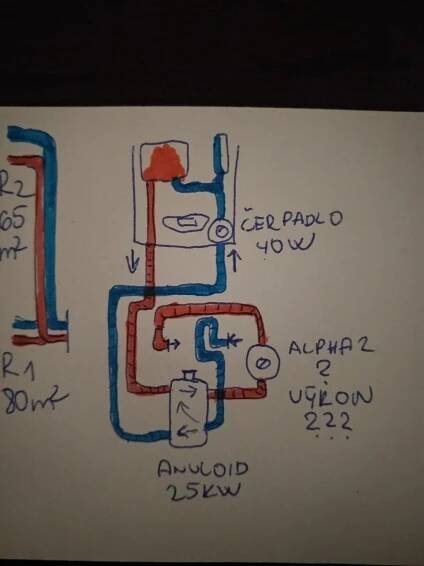 R2
65
m²
R1
80m²
ČERPADLO
40W
ALPHA2
?
VÝKON
???
ANULOID
25KW